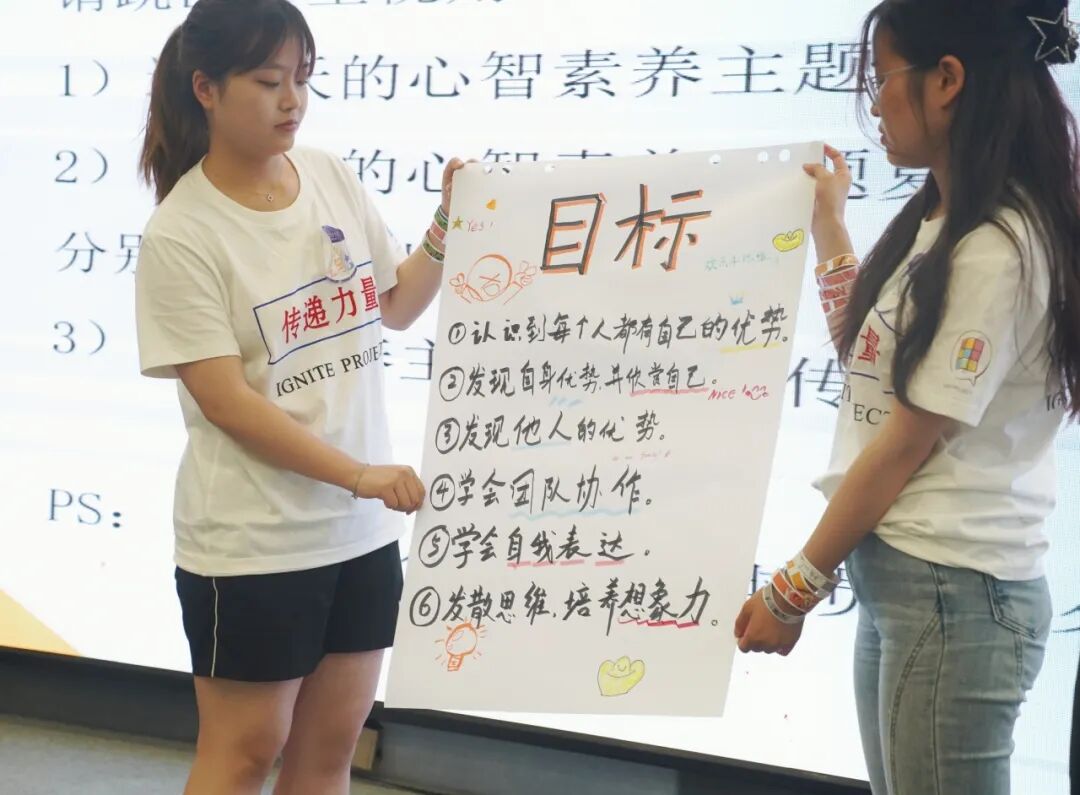 1）
天的心智素养主题
2）
的心智素养
题
分别
3）
主
传
PS：
Yes!
目标
①认识到每个人都有自己的优势。
②发现自身优势,并欣赏自己。
NICE!
③发现他人的优势。
④学会团队协作。
⑤学会自我表达。
⑥发散思维.培养想象力。
传递力量
IGNITE PROJECT
量
ECT